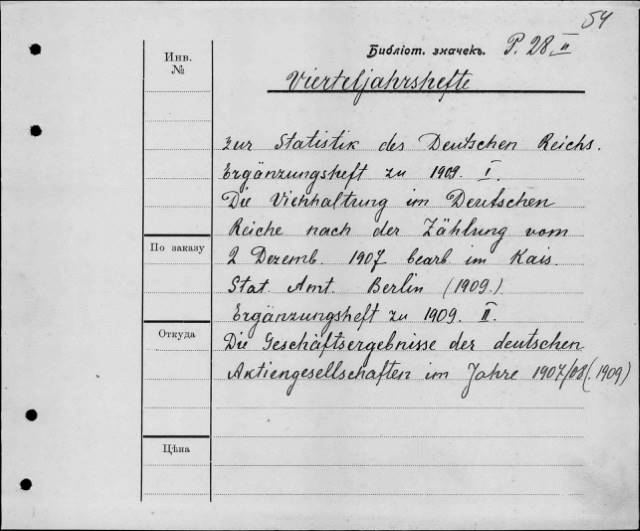 54
Инв.
№
Библіот. значекъ. P. 28 II
Vierteljahrshefte
zur Statistik des Deutschen Reichs.
Ergänzungsheft zu 1909. I.
Die Viehhaltung im Deutschen
Reiche nach der Zählung vom
2 Dezemb. 1907 bearb. im Kais.
Stat. Amt. Berlin (1909.)
Ergänzungsheft zu 1909. II.
Die Geschäftsergebnisse der deutschen
Aktiengesellschaften im Jahre 1907/08 (1909)
По заказу
Откуда
Цѣна